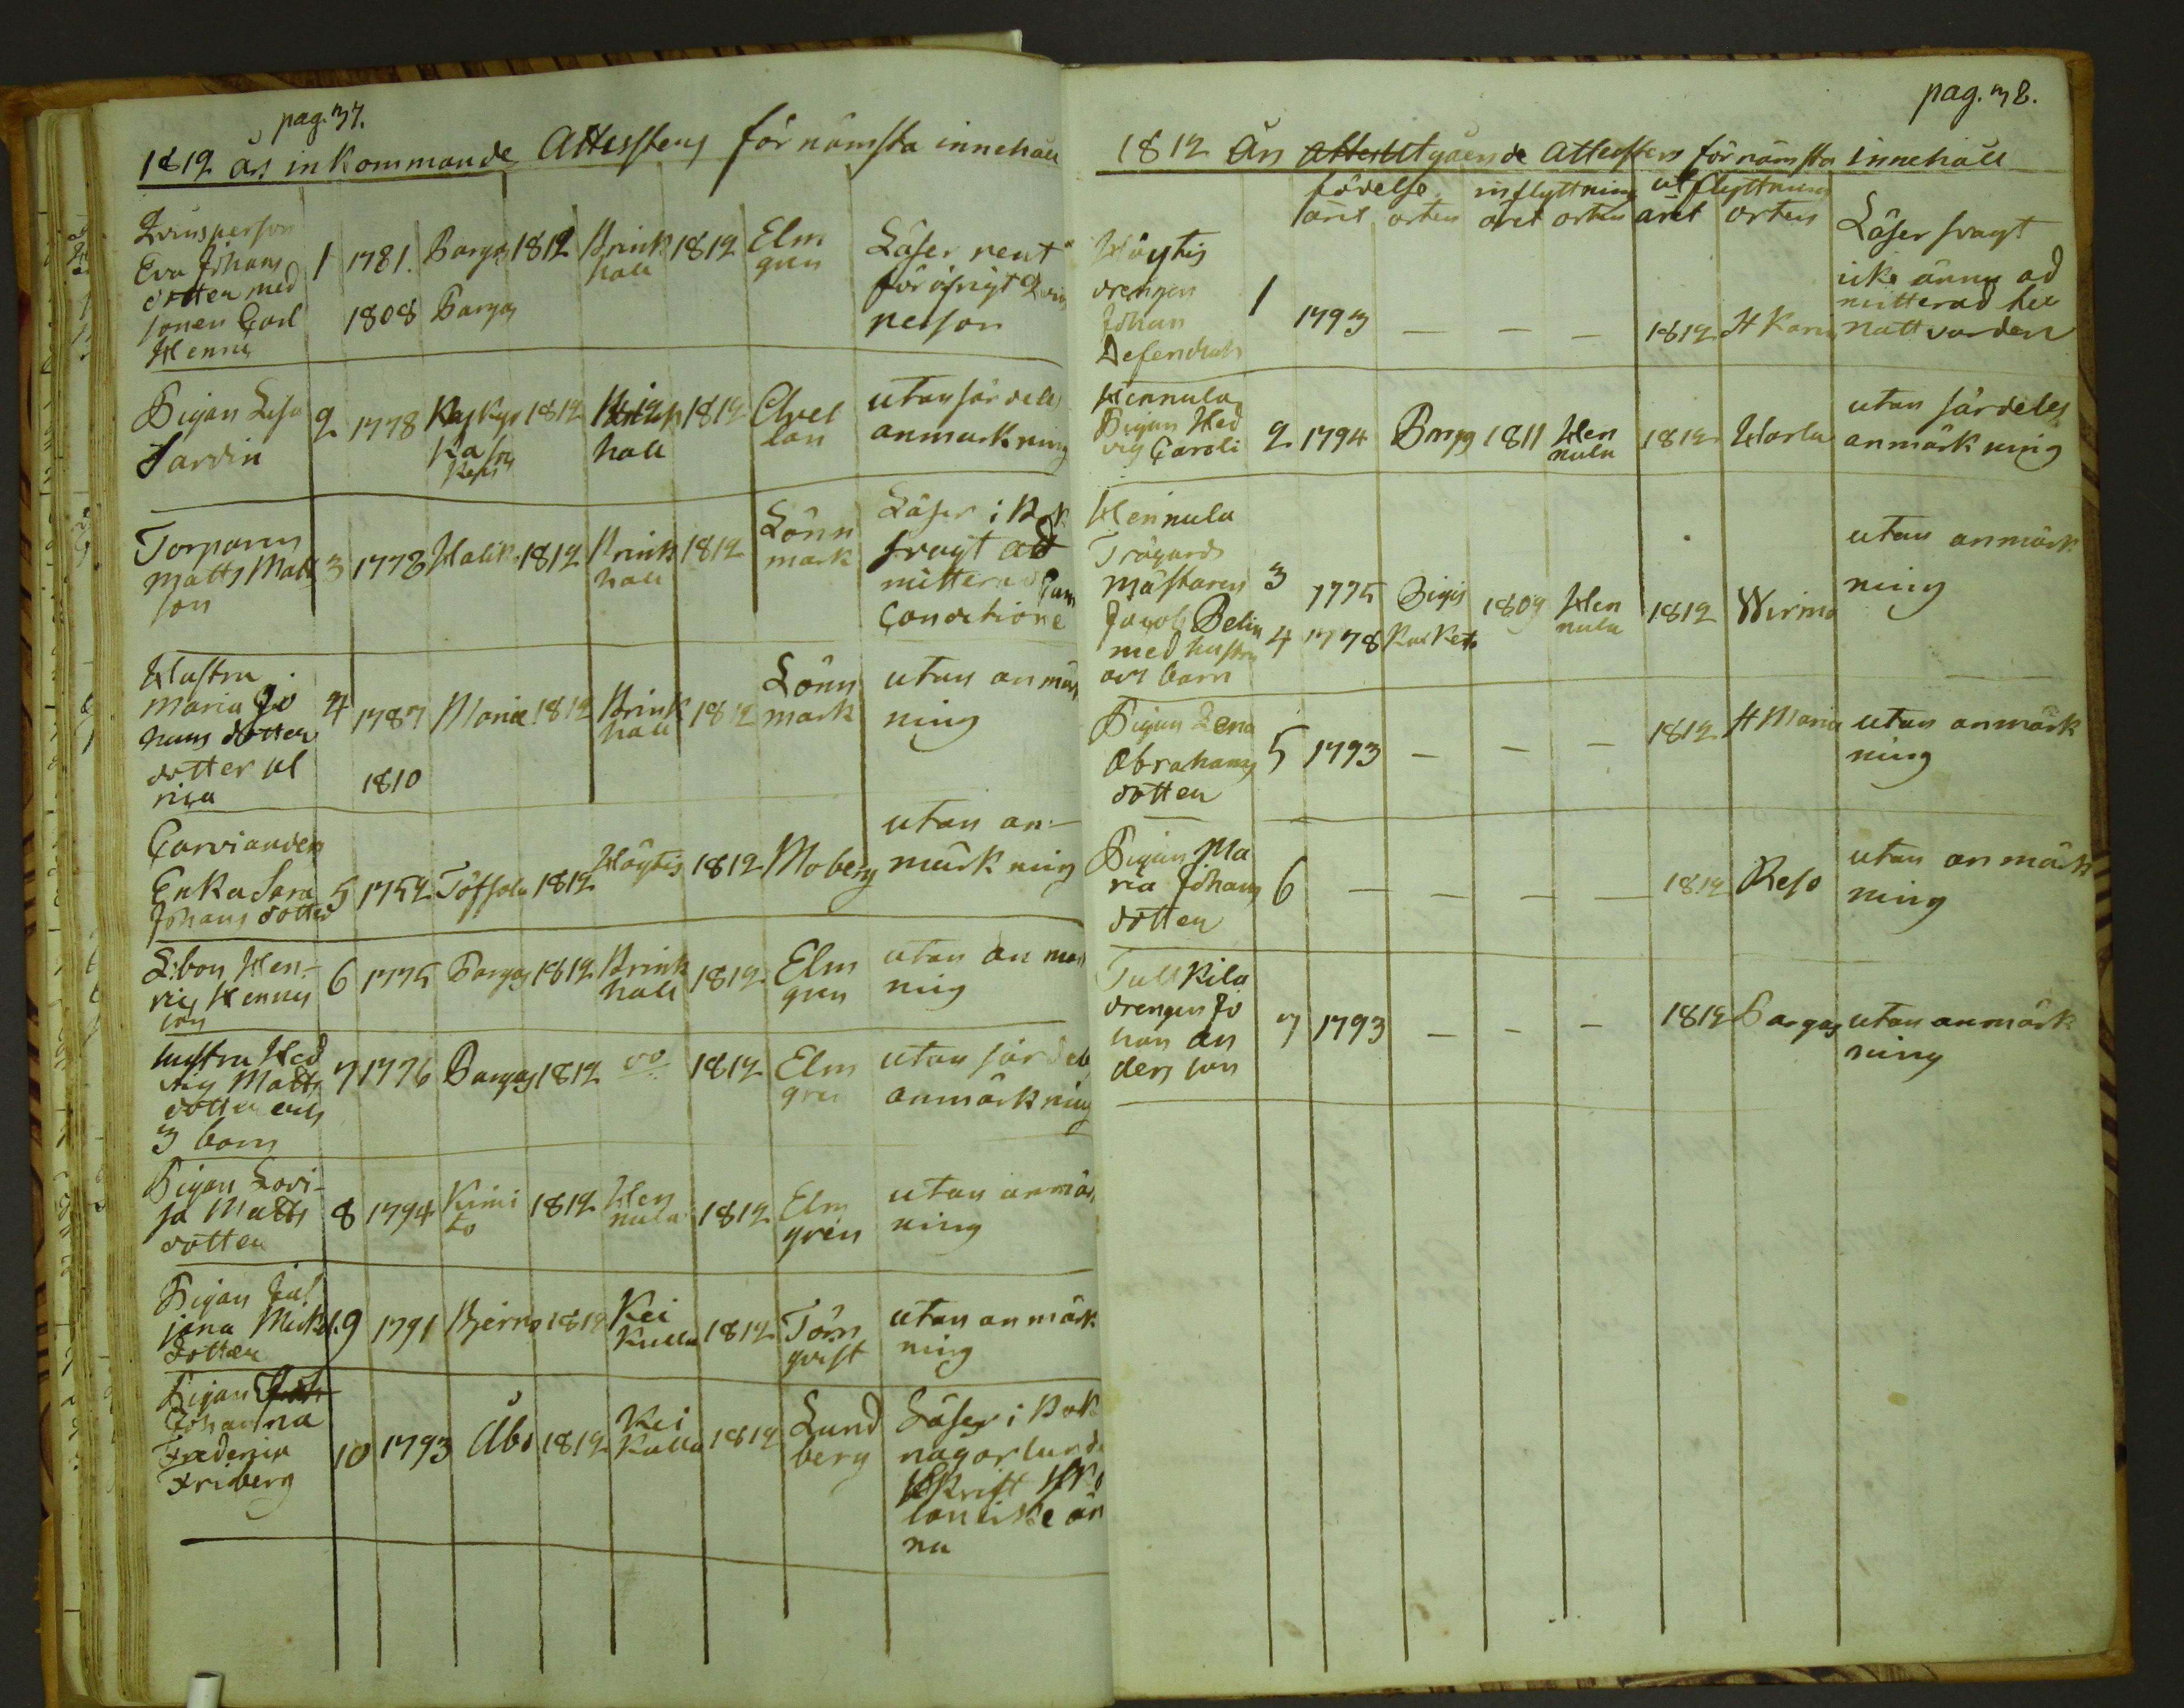 pag. 37.
1812 års inkommande Attesters förnämsta innehåll
Qvinsperson
Eva Johans
dotter med
sonen Carl
Henric
1 1781. Pargas 1812 Brink
hall 1812 Elm
gren
1808 Pargas
Läser rent
för öfrigt Qvins
person
Pigan Lisa
Sardin
2 1778 1812 Brink
hall 1812
utan särdeles
anmärkning
Torparen
Matts Matts
son
3 1778 Haliko 1812 Brink
hall 1812 Lönn
mark
Läser i Bok
svagt ad
mitterad sum
Conditione
Hustru
Maria Jo
hans dotter
dotter Ul
rica
4 1787 Mariæ 1812 Brink
hall 1812 Lönn
mark
1810
utan anmärk
ning
Enka Sara
Johans dotter
5 1752 Töfsala 1812 Höytis 1812 Moberg
utan an-
märkning
Hen-
ric Henrics
son
6 1775 Pargas 1812 Brink
hall 1812 Elm
gren
utan anmärk
ning
hustru Hed
vig Matts
dotter och
3 barn
7 1776 Pargas 1812 do 1812 Elm
gren
utan särdeles
anmärkning
Pigan Lovi-
sa Matts
dotter
8 1794 Kimi
to 1812 Hen
nala 1812 Elm
gren
utan anmärk
ning
Pigan Jul
jana Mickels
dotter
9 1791 Bjerno 1812 Kei
kulla 1812 Törn
qvist
utan anmärk
ning
Pigan
Johanna
Frederica
Friberg
10 1793 Åbo 1812 Kei
kulla 1812 Lund
berg
Läser i Bok
någorlunda
Skrift
na
pag. 38.
1812 Års Utgående Attesters förnämsta innehåll
födelse inflyttning utflyttning
året orten året orten året orten
Höytis
drengen
Johan
1 1793 — — — 1812 St Karin
Läser svagt
icke ännu ad
mitterad hel
nattvarden
Hennala
Pigan Hed
vig Caroli
2 1794 Pargas 1811 Hen
nala 1812
utan särdeles
anmärkning
Hennala
Trägårds
mästaren
Jacob Belin
med hustru
och barn
3 1775 1809 Hen
nala 1812 Wirmo
4 1778
utan anmärk
ning
Pigan Lena
Abrahams
dotter
5 1793 — — — 1812 St Maria
utan anmärk
ning
Pigan Ma
ria Johans
dotter
6 — — — — 1812 Reso
utan anmärk
ning
Tullkila
drengen Jo
han An
ders son
7 1793 — — — 1812 Pargas
utan anmärk
ning